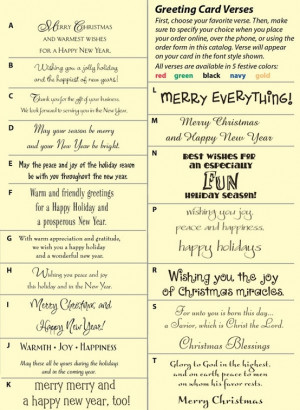 A
Merry Christmas
and warmest wishes
for a Happy New Year.
B
Wishing you a jolly holiday
and the happiest of new years!
C
Thank you for the gift of your business.
We look forward to serving you in the New Year.
D
May your season be merry
and your New Year be bright.
E
May the peace and joy of the holiday season
be with you throughout the new year.
F
Warm and friendly greetings
for a Happy Holiday and
a prosperous New Year.
G
With warm appreciation and gratitude,
we wish you a happy holiday
and a wonderful new year.
H
Wishing you peace and joy
this holiday and in the New Year.
I
Merry Christmas and
Happy New Year!
J
Warmth • Joy • Happiness
May these all be yours during the holidays
and in the coming year.
K
merry merry and
a happy new year, too!
Greeting Card Verses
First, choose your favorite verse. Then, make
sure to specify your choice when you place
your order online, over the phone, or using the
order form in this catalog. Verse will appear
on your card in the font style shown.
All verses are available in 5 festive colors:
red green black navy gold
L
MERRY EVERYTHING!
M
Merry Christmas
and Happy New Year
N
BEST WISHES FOR
AN ESPECIALLY
FUN
HOLIDAY SEASON!
P
wishing you joy,
peace and happiness,
happy holidays
R
Wishing you the joy
of Christmas miracles.
S
For unto you is born this day...
a Savior, which is Christ the Lord.
Christmas Blessings
T
Glory to God in the highest,
and on earth peace to men
on whom his favor rests.
Merry Christmas